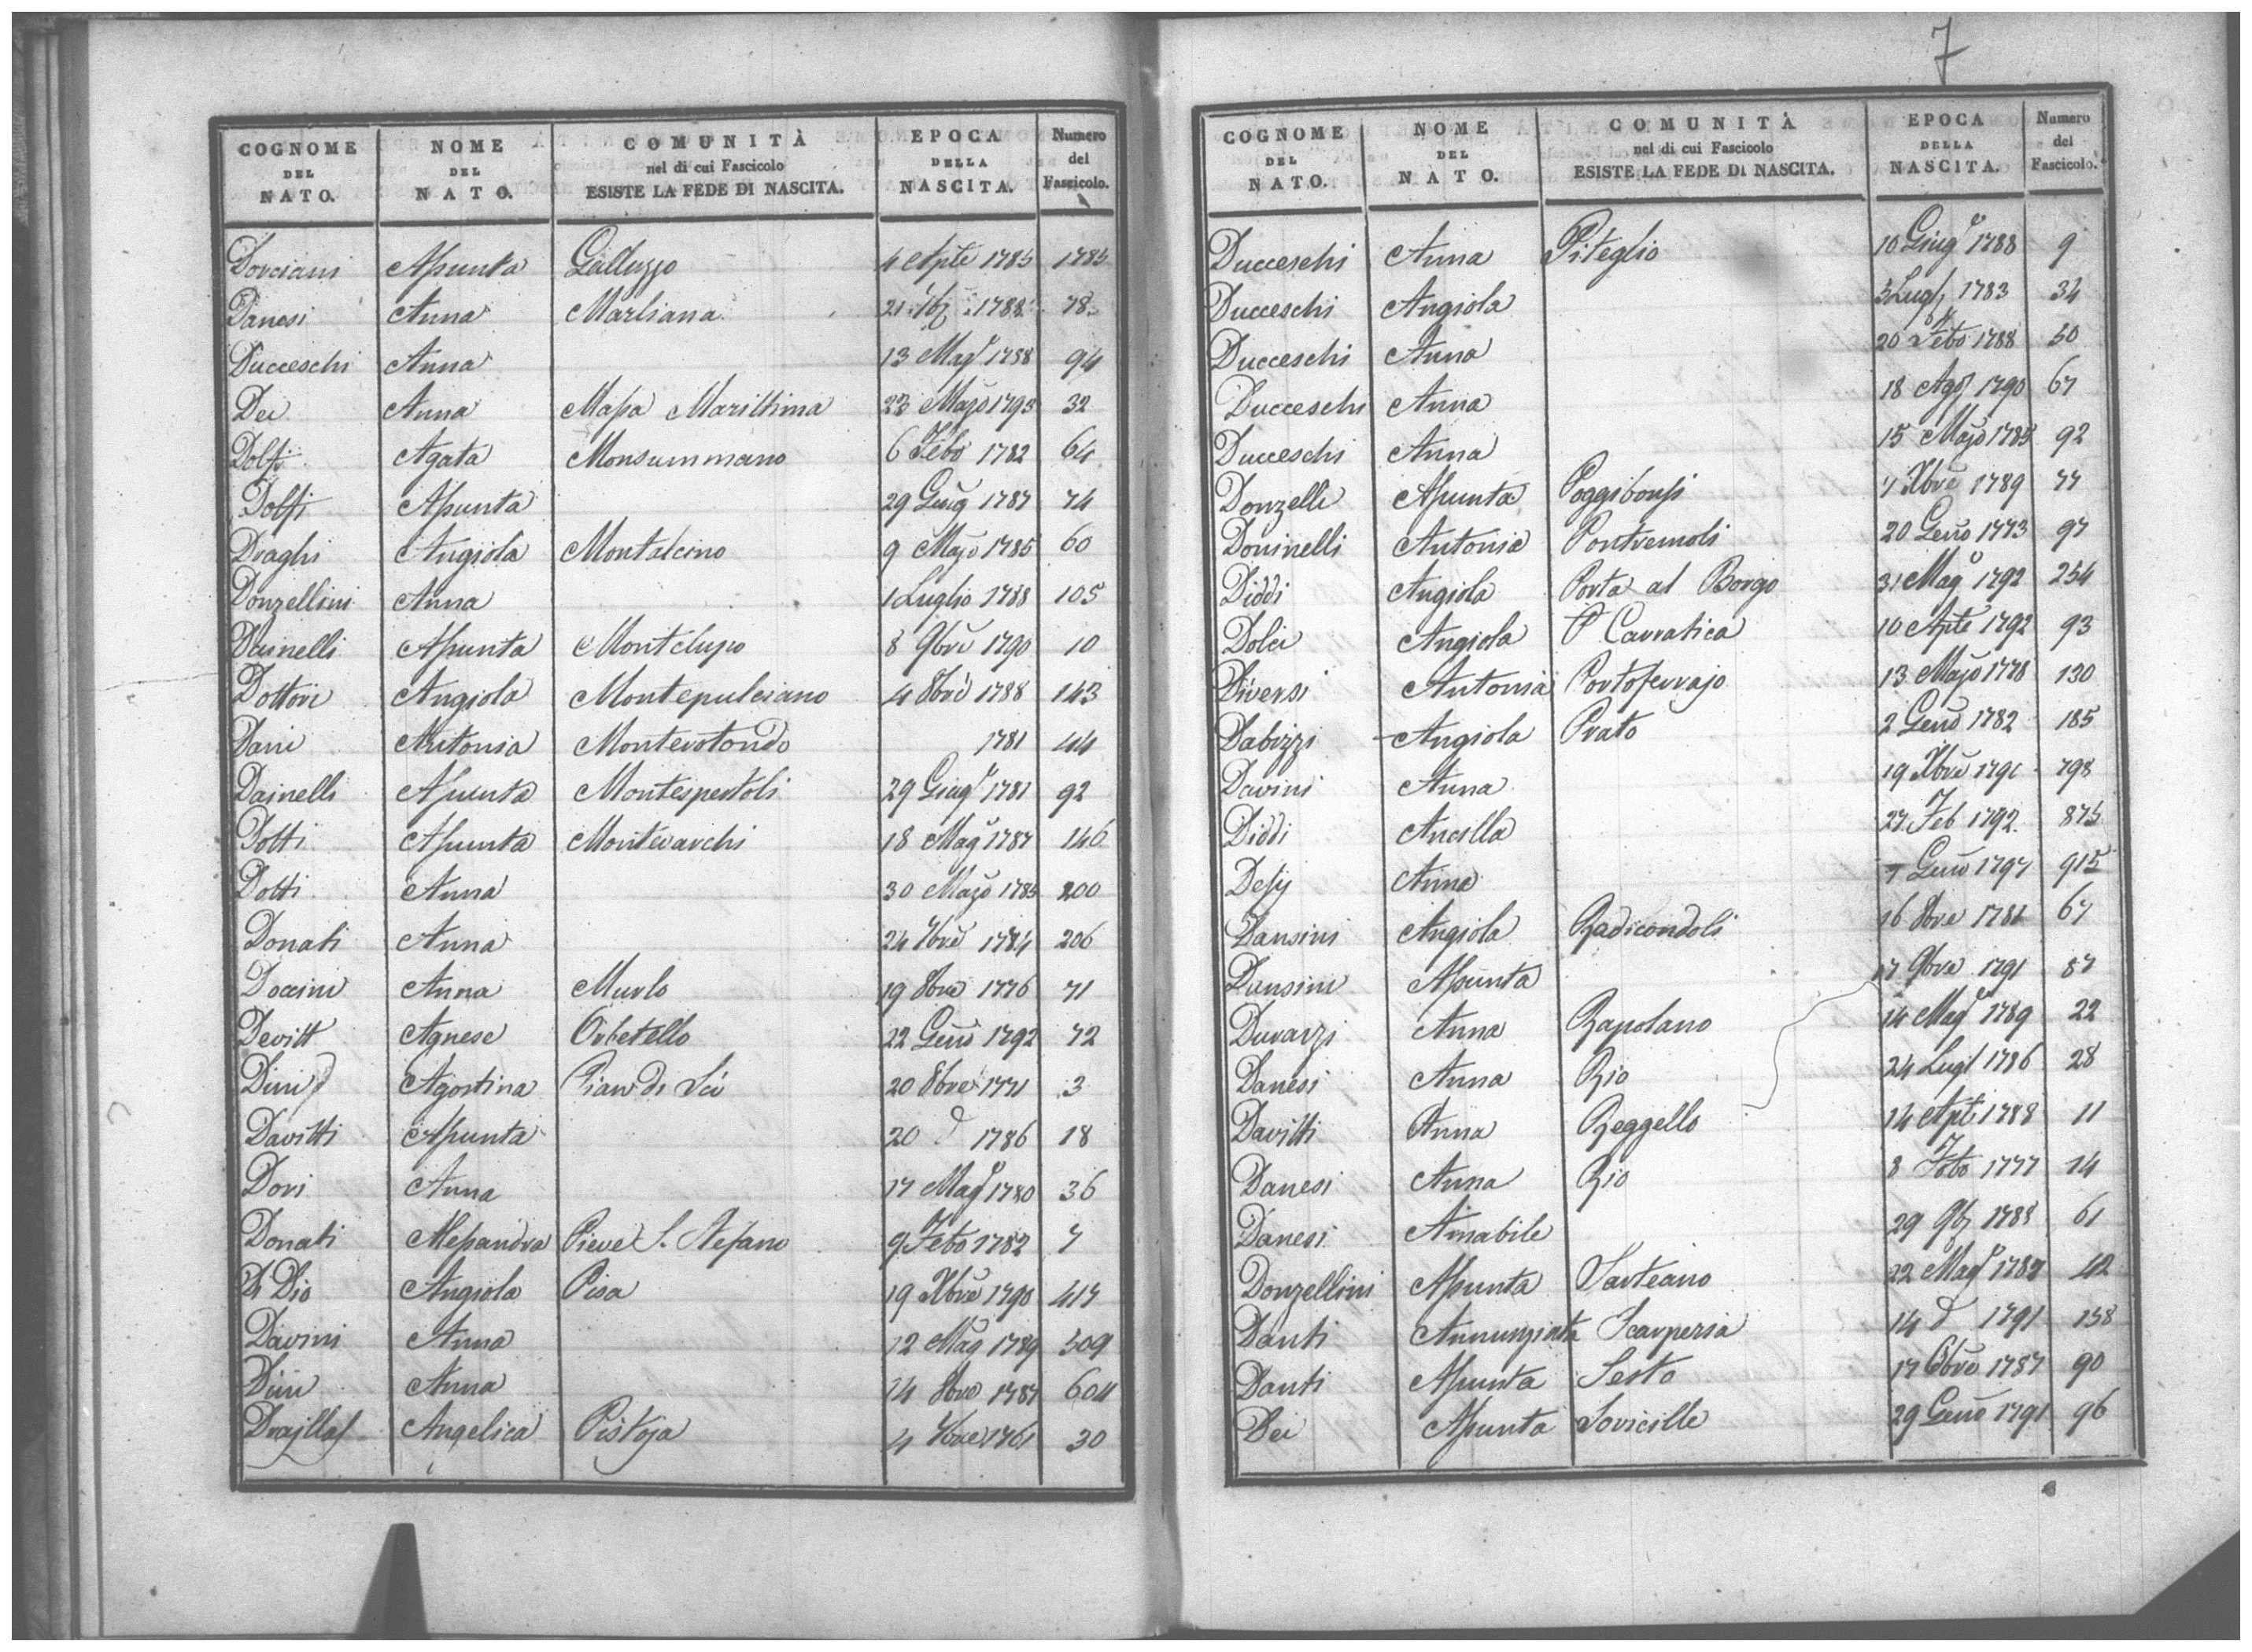 COGNOME DEL NATO. NOME DEL NATO. COMUNITÀ nel di cui Fascicolo ESISTE LA FEDE DI NASCITA. EPOCA DELLA NASCITA. Numero del Fascicolo.
Dorciani Assunta Galluzzo 4 Aple 1785 1785
Danesi Anna Marliana 21 1788 78
Ducceschi Anna 13 Mago 1788 94
Dei Anna Massa Marittima Marzo 1795 32
Dolfi Agata Monsummano 6 Febo 1782 64
Dolfi Assunta 29 Giug 1787 74
Draghi Angiola Montalcino 9 Marzo 1785 60
Donzellini Anna 1 Luglio 1788 105
Dainelli Assunta Montelupo 8 9bre 1790 10
Dottori Angiola Montepulciano 4 8bre 1788 143
Dani Antonia Monterotondo 1781 44
Dainelli Assunta Montespertoli 29 Giugo 1781 92
Dotti Assunta Montevarchi 18 Mago 1787 146
Dotti Anna 30 Marzo 1785 200
Donati Anna 24 7bre 1784 206
Doccini Anna Murlo 19 8bre 1776 71
Devitt Agnese Orbetello 22 Geno 1792 72
Dini Agostina Pian di Sco 20 8bre 1771 3
Davitti Assunta 20 d 1786 18
Dori Anna 17 Mago 1780 36
Donati Alessandra Pieve S. Stefano 9 Febo 1782 7
Di Dio Angiola Pisa 19 Xbre 1790 417
Davini Anna 12 Mago 1789 509
Dini Anna 14 8bre 1787 604
Angelica Pistoja 4 7bre 1761 30
7
COGNOME DEL NATO. NOME DEL NATO. COMUNITÀ nel di cui Fascicolo ESISTE LA FEDE DI NASCITA. EPOCA DELLA NASCITA. Numero del Fascicolo.
Ducceschi Anna Piteglio 10 Giugo 1788 9
Ducceschi Angiola 3 Lugl 1783 34
Ducceschi Anna 20 Febo 1788 50
Ducceschi Anna 18 Ago 1790 67
Ducceschi Anna 15 Marzo 1785 92
Donzelli Assunta Poggibonsi 7 Xbre 1789 77
Doninelli Antonia Pontremoli 20 Geno 1773 97
Diddi Angiola Porta al Borgo 31 Mago 1792 254
Dolci Angiola Pa Carratica 10 Aple 1792 93
Diversi Antonia Portoferrajo 13 Marzo 1778 130
Dabizzi Angiola Prato 2 Geno 1782 185
Davini Anna 19 Xbre 1798
Diddi Ancilla 27 Feb 1792 875
Dessy Anna 7 Geno 1797 915
Dansini Angiola Radicondoli 16 8bre 1781 67
Dansini Assunta 17 9bre 1791 87
Duranzi Anna Rapolano 14 Mago 1789 22
Danesi Anna Rio 24 Lugl 1786 28
Davitti Anna Reggello 14 Aple 1788 11
Danesi Anna Rio 8 Febo 1777 14
Danesi Amabile 29 9b 1788 61
Donzellini Assunta Sarteano 22 Mago 1787 42
Danti Annunziata Scarperia 14 d 1791 158
Danti Assunta Sesto 17 1787 90
Dei Assunta Sovicille 29 Geno 1791 96